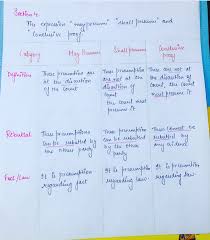 Section 4.
The expression "may presume" "shall presume" and
"conclusive proof"
May Presume Shall presume Conclusive proof
Definition These presumption are at the discretion of the court
These presumption are not at the discretion of the court
the court must presume it
These presumption are not at the discretion of the court, the court must presume it
Rebuttal These presumptions can be rebutted by the other party
These presumption can be rebutted by the other party
These cannot be rebutted by any evidence
Fact/Law It is presumption regarding fact
It is presumption regarding law
It is presumption regarding law